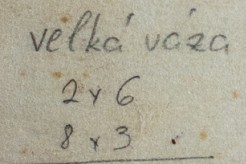 velká váza
2 x 6
8 x 3